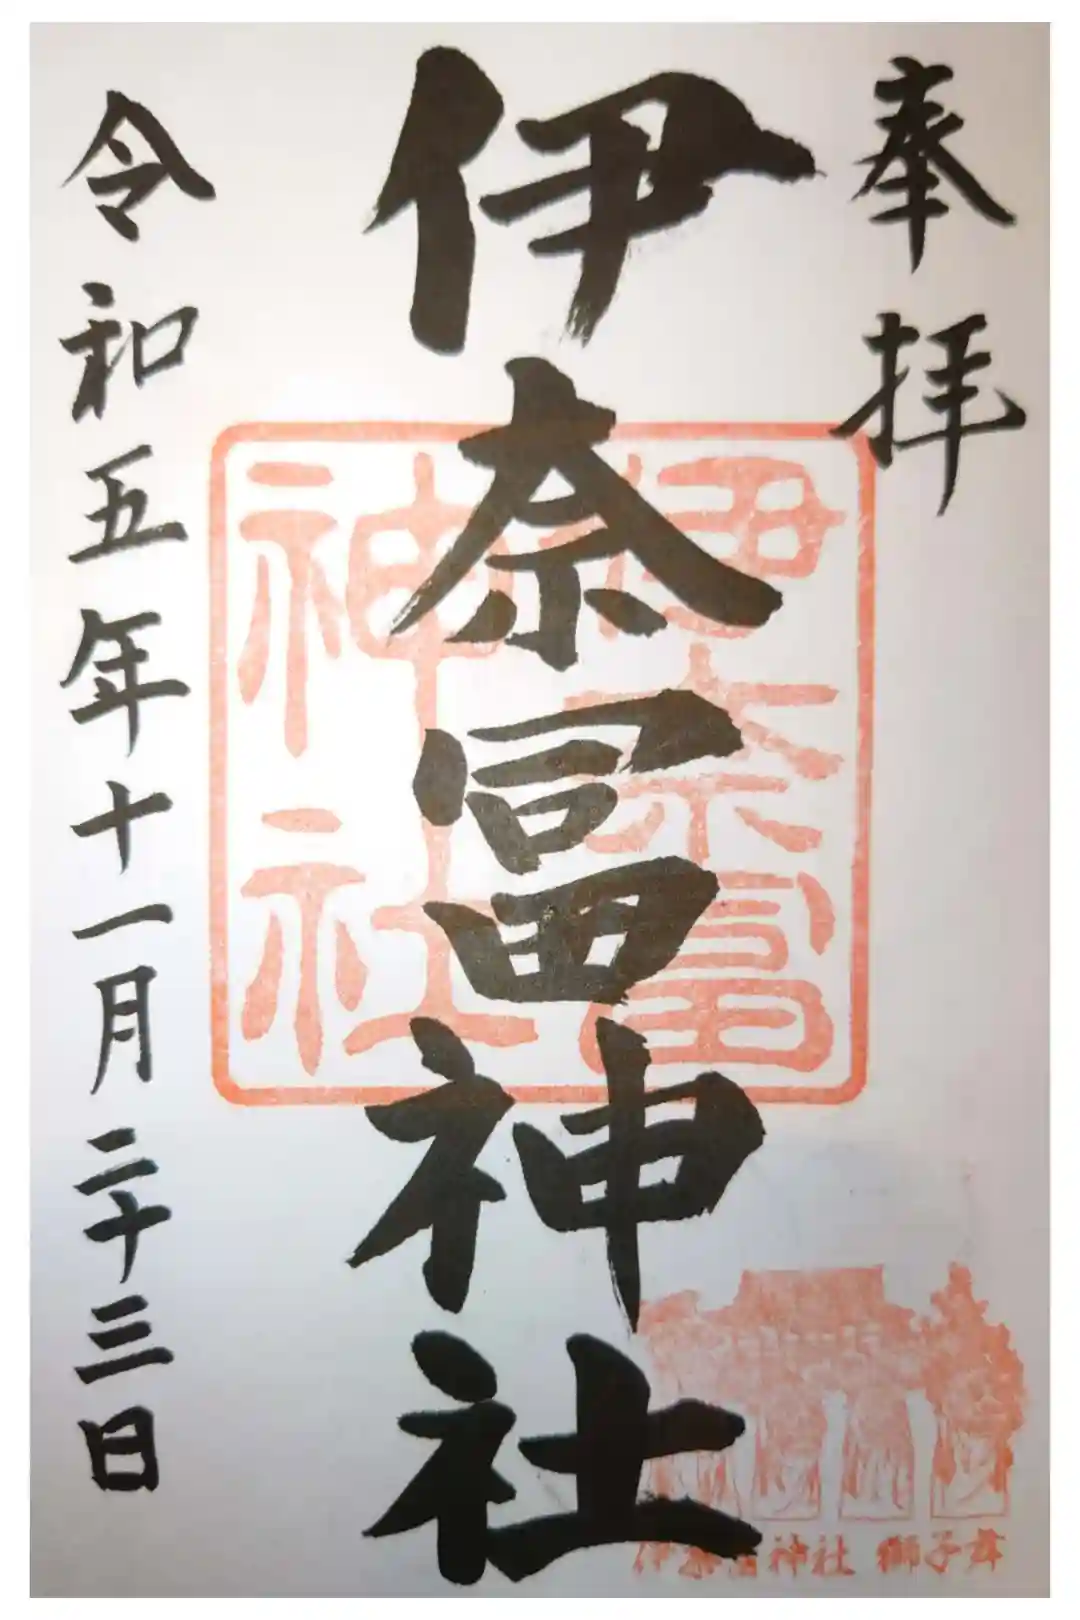 奉拝
伊奈冨神社
伊奈冨
神社
令和五年十一月二十三日
伊奈冨神社 獅子舞